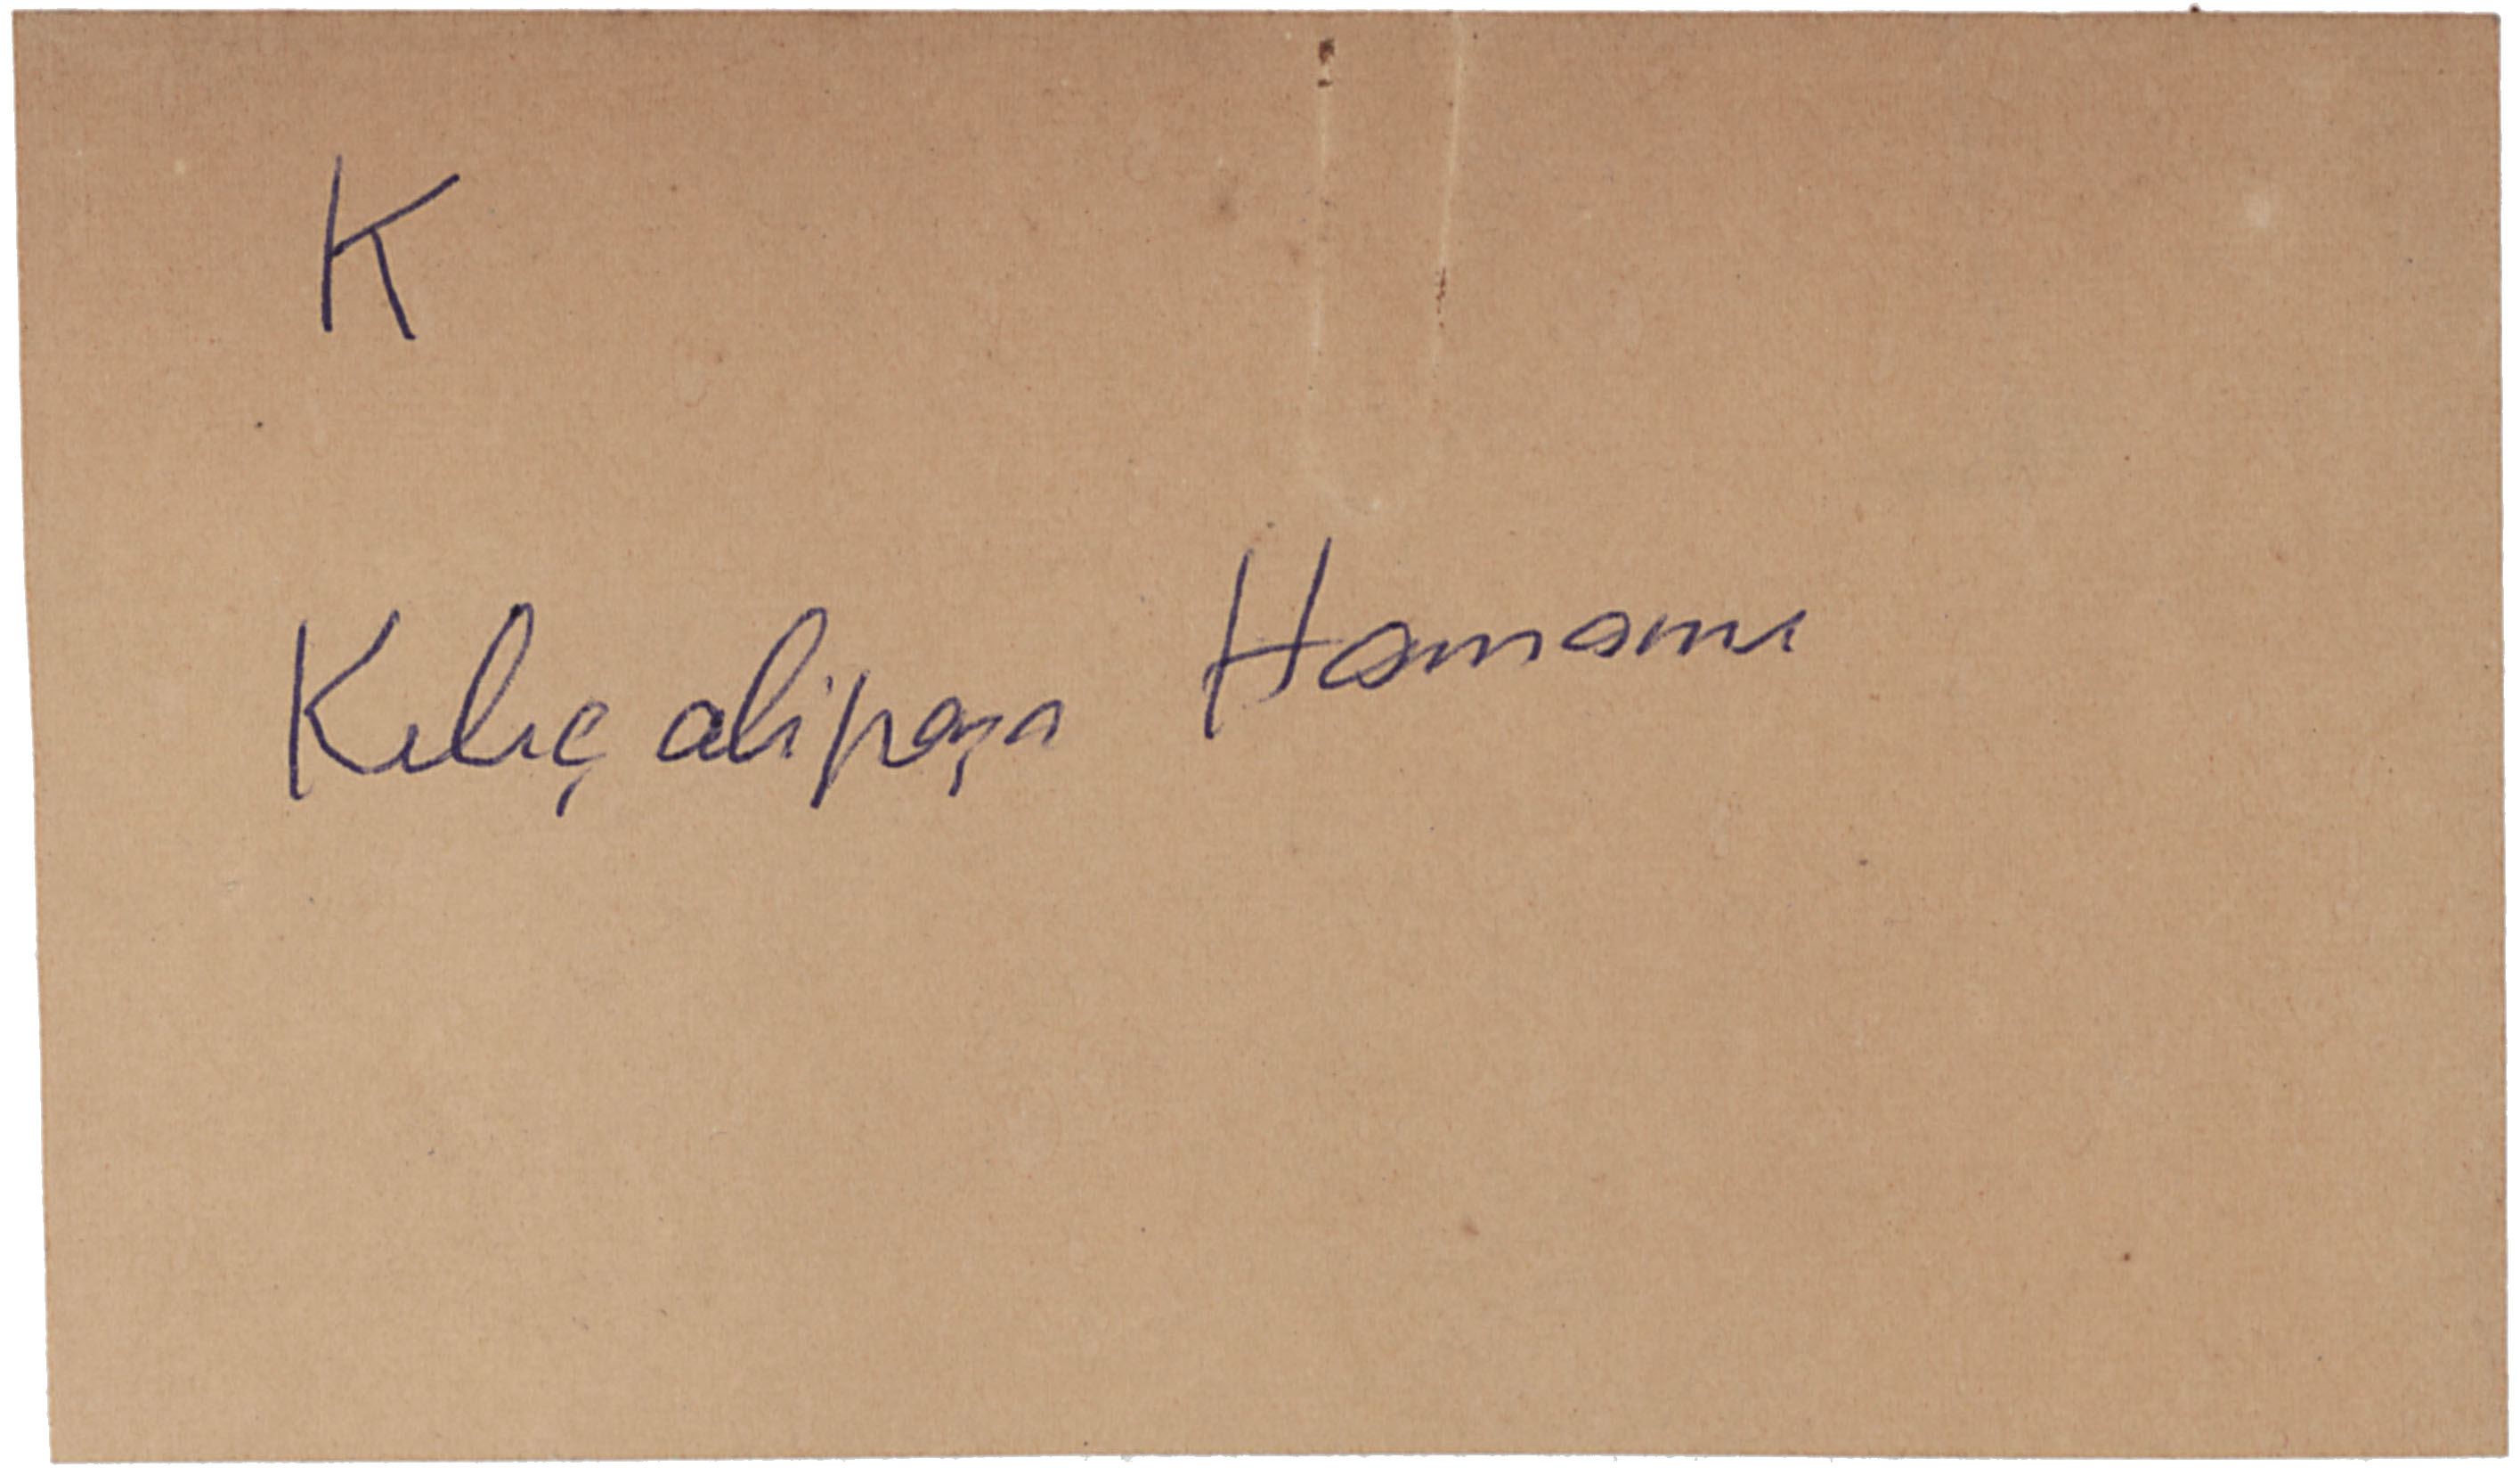 K
Kılıç alipaşa Hamamı